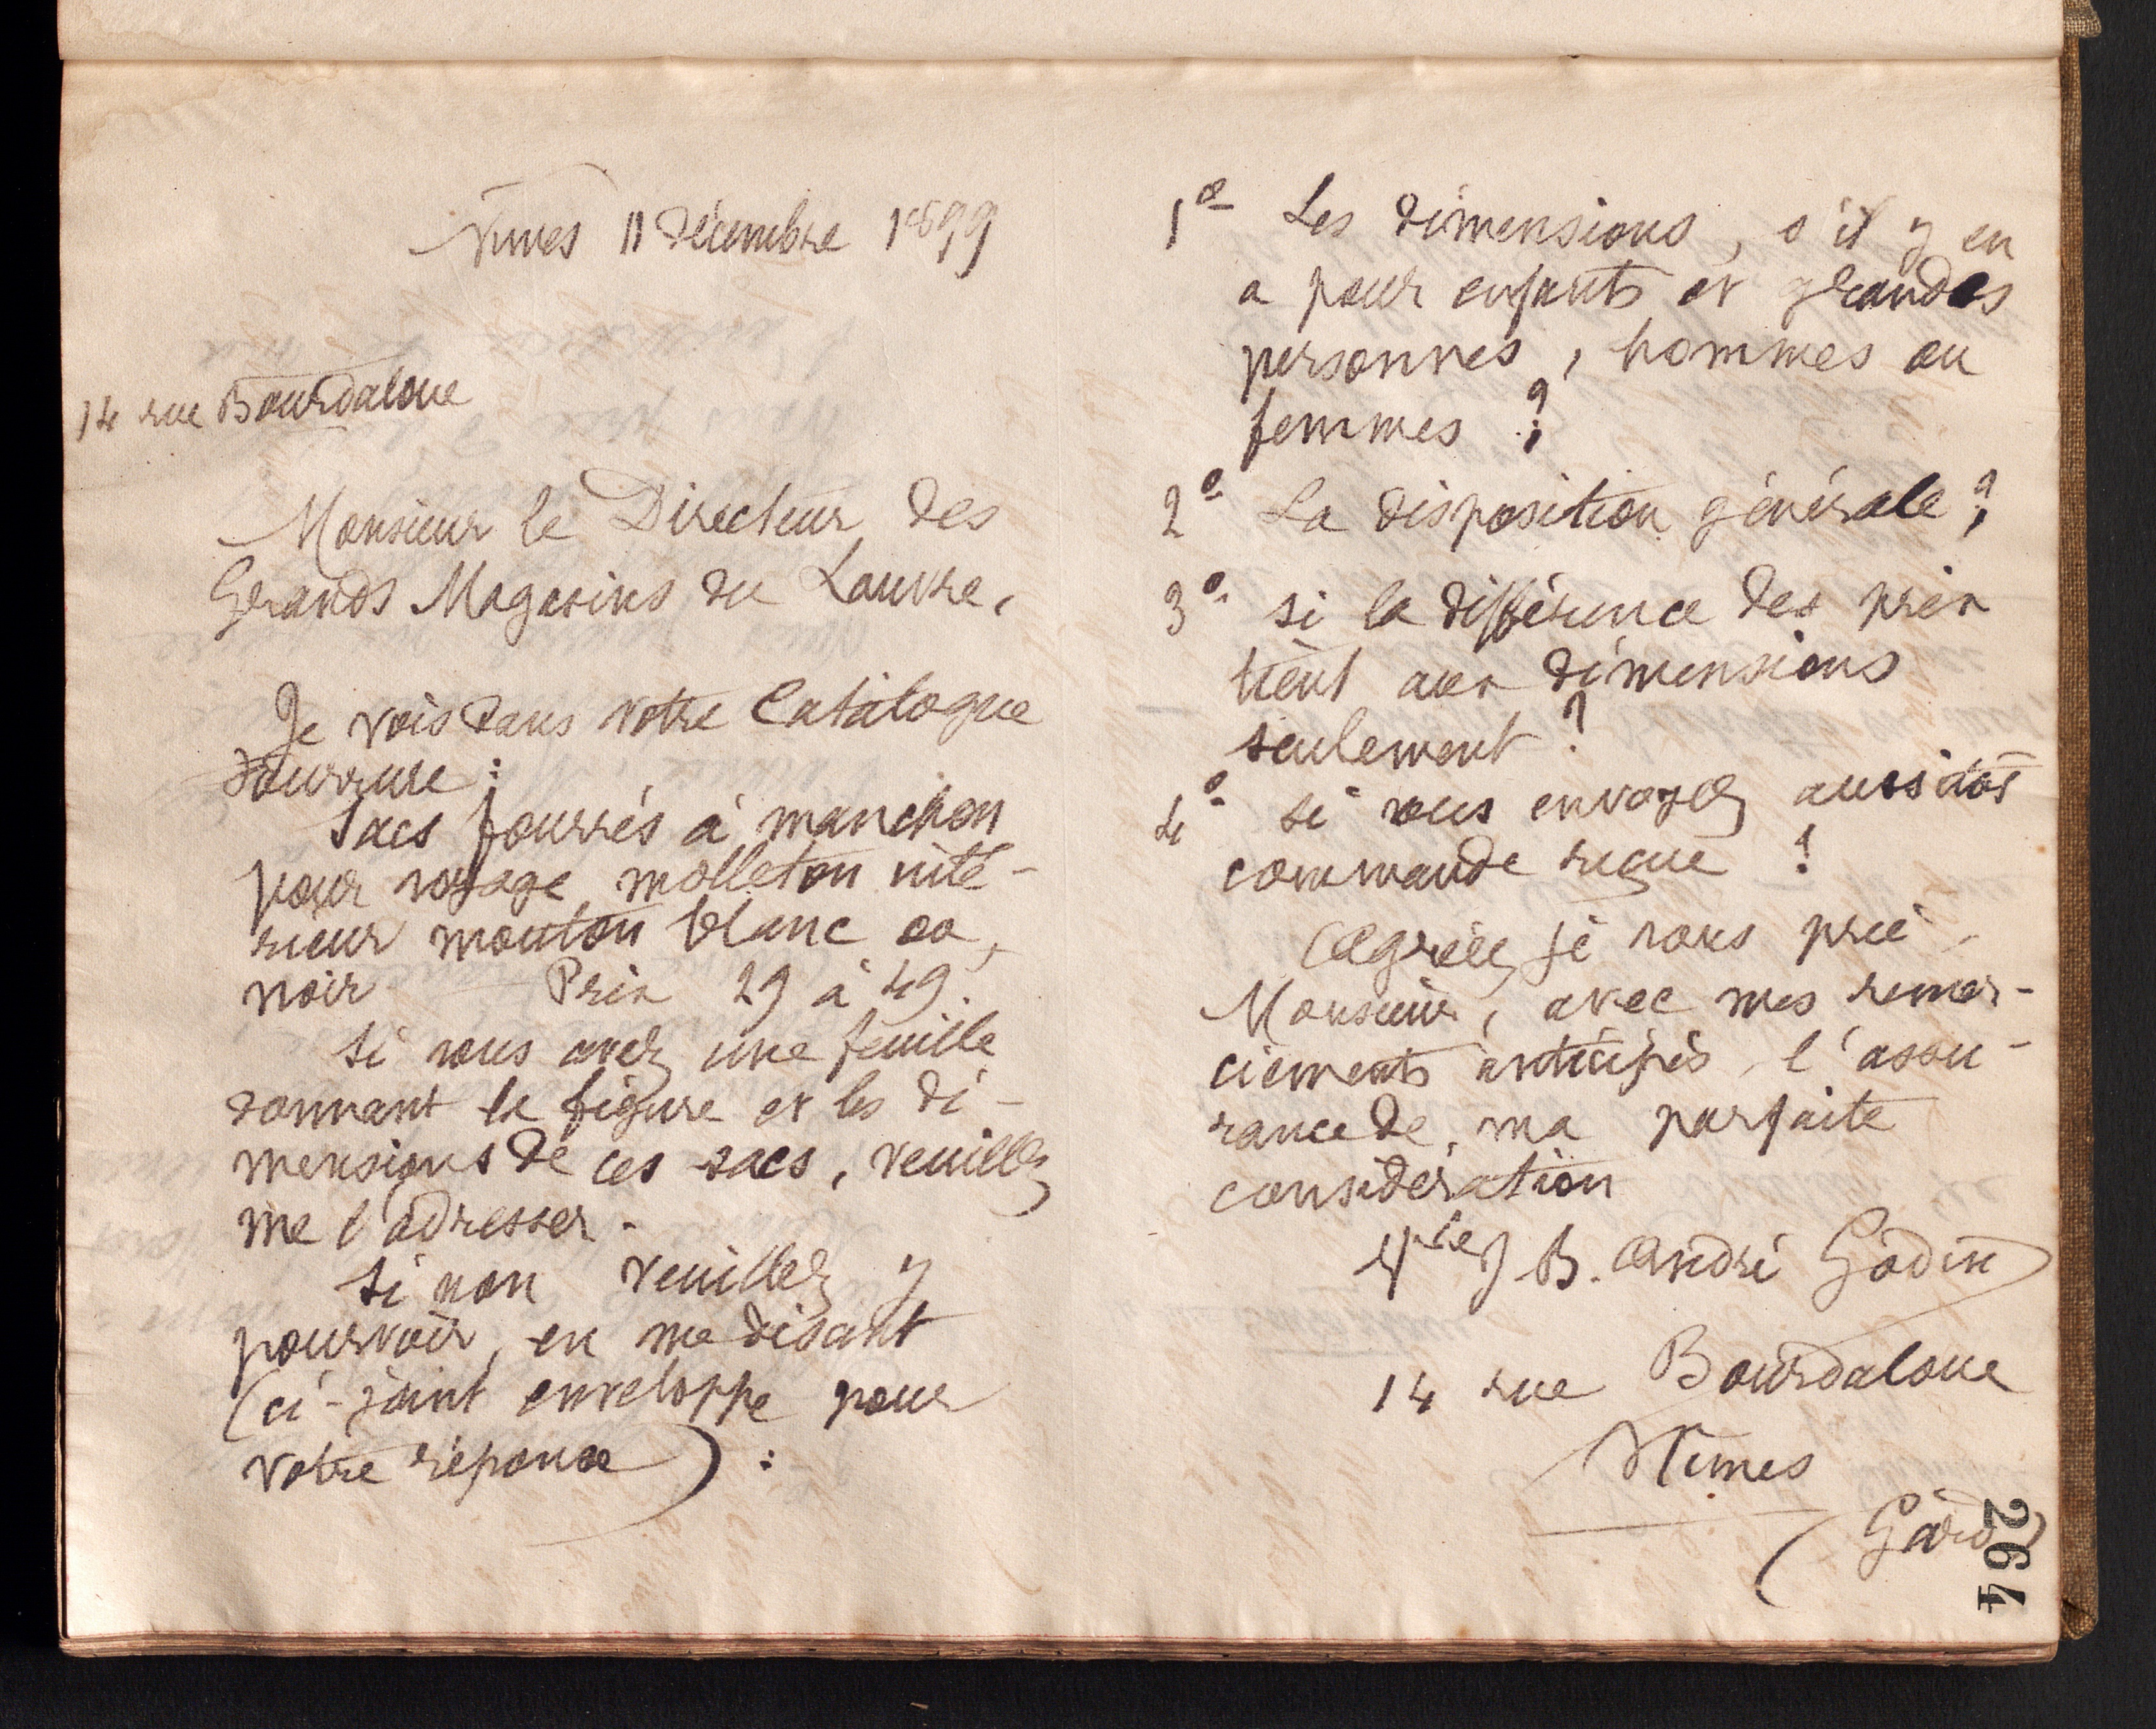 Nimes 11 décembre 1899
14 rue Bourdaloue
Monsieur le Directeur des
Grands Magasins du Louvre,
Je vois dans votre Catalogue
Fourrure :
Sacs fourrés à manchon
pour voyage molleton inté-
rieur mouton blanc ou
noir Prix 29 à 49.
Si vous avez une feuille
donnant la figure et les di-
mensions de ces sacs, veuillez
me l'adresser.
Si non veuillez y
pourvoir, en me disant
(ci-joint enveloppe pour
votre réponse) :
1° Les dimensions, s'il y en
a pour enfants et grandes
personnes, hommes ou
femmes ?
2° La disposition générale ?
3° si la différence des prix
tient aux dimensions
seulement ?
4° si vous envoyez aussitôt
commande reçue ?
Agréez, je vous prie,
Monsieur, avec mes remer-
ciements anticipés, l'assu-
rance de ma parfaite
considération
Vve J B. André Godin
14 rue Bourdaloue
Nimes
(Gard)
264